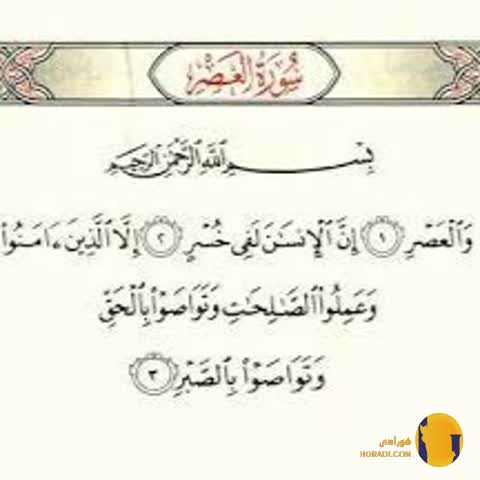 سُورَةُ العَصْرِ
بِسْمِ اللَّهِ الرَّحْمَٰنِ الرَّحِيمِ
وَٱلْعَصْرِ ١ إِنَّ ٱلْإِنسَٰنَ لَفِى خُسْرٍ ٢ إِلَّا ٱلَّذِينَ ءَامَنُوا۟
وَعَمِلُوا۟ ٱلصَّٰلِحَٰتِ وَتَوَاصَوْا۟ بِٱلْحَقِّ
وَتَوَاصَوْا۟ بِٱلصَّبْرِ ٣
HORADI.COM